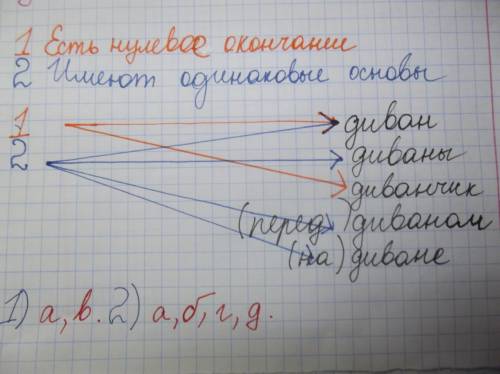 1 Есть нулевое окончании
2 Имеют одинаковые основы
1
2
диван
диваны
диванчик
(перед) диваном
(на) диване
1) а, в. 2) а, б, г, д.